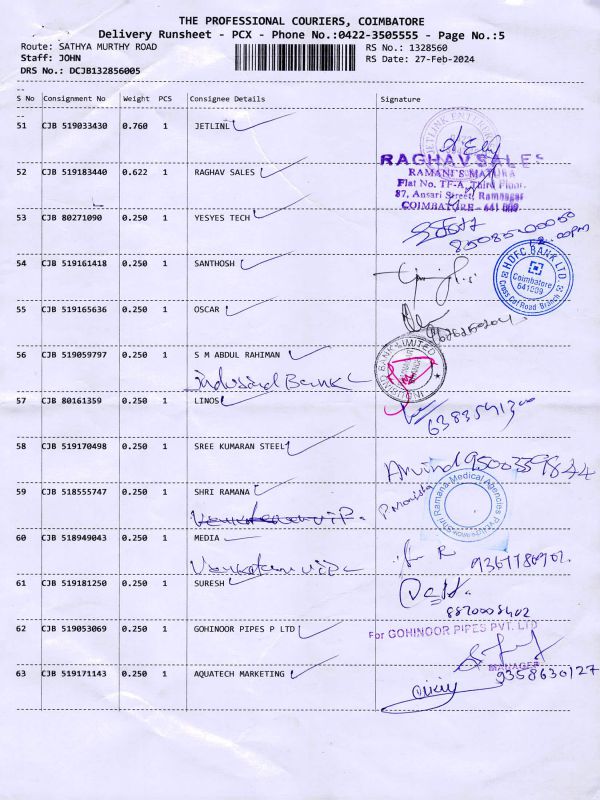 THE PROFESSIONAL COURIERS, COIMBATORE
Delivery Runsheet - PCX - Phone No.:0422-3505555 - Page No.:5
Route: SATHYA MURTHY ROAD RS No.: 1328560
Staff: JOHN RS Date: 27-Feb-2024
DRS No.: DCJB132856005
S No Consignment No Weight PCS Consignee Details Signature
51 CJB 519033430 0.760 1 JETLINL
52 CJB 519183440 0.622 1 RAGHAV SALES
RAGHAV SALES
RAMANI'S MAYURA
Flat No. TF-A, Third Floor,
87, Ansari Street, Ramnagar
COIMBATORE - 641 009
53 CJB 80271090 0.250 1 YESYES TECH
54 CJB 519161418 0.250 1 SANTHOSH
HDFC BANK LTD
Coimbatore
641009
Cross Cut Road Branch
55 CJB 519165636 0.250 1 OSCAR
56 CJB 519059797 0.250 1 S M ABDUL RAHIMAN
Indusind Bank
INDUSIND BANK LIMITED
57 CJB 80161359 0.250 1 LINOS
58 CJB 519170498 0.250 1 SREE KUMARAN STEEL
Arvind 9500359844
59 CJB 518555747 0.250 1 SHRI RAMANA
Shri Ramana Medical Agencies
60 CJB 518949043 0.250 1 MEDIA
61 CJB 519181250 0.250 1 SURESH
8870008402
62 CJB 519053069 0.250 1 GOHINOOR PIPES P LTD
For GOHINOOR PIPES PVT. LTD
MANAGER
9358630127
63 CJB 519171143 0.250 1 AQUATECH MARKETING